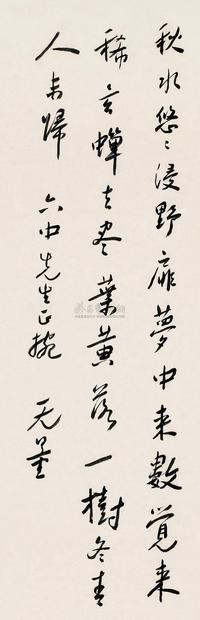 秋水悠〻浸野扉夢中来數覺来
稀玄蟬去盡葉黄落一樹冬青
人未歸 六中先生正捥 无量